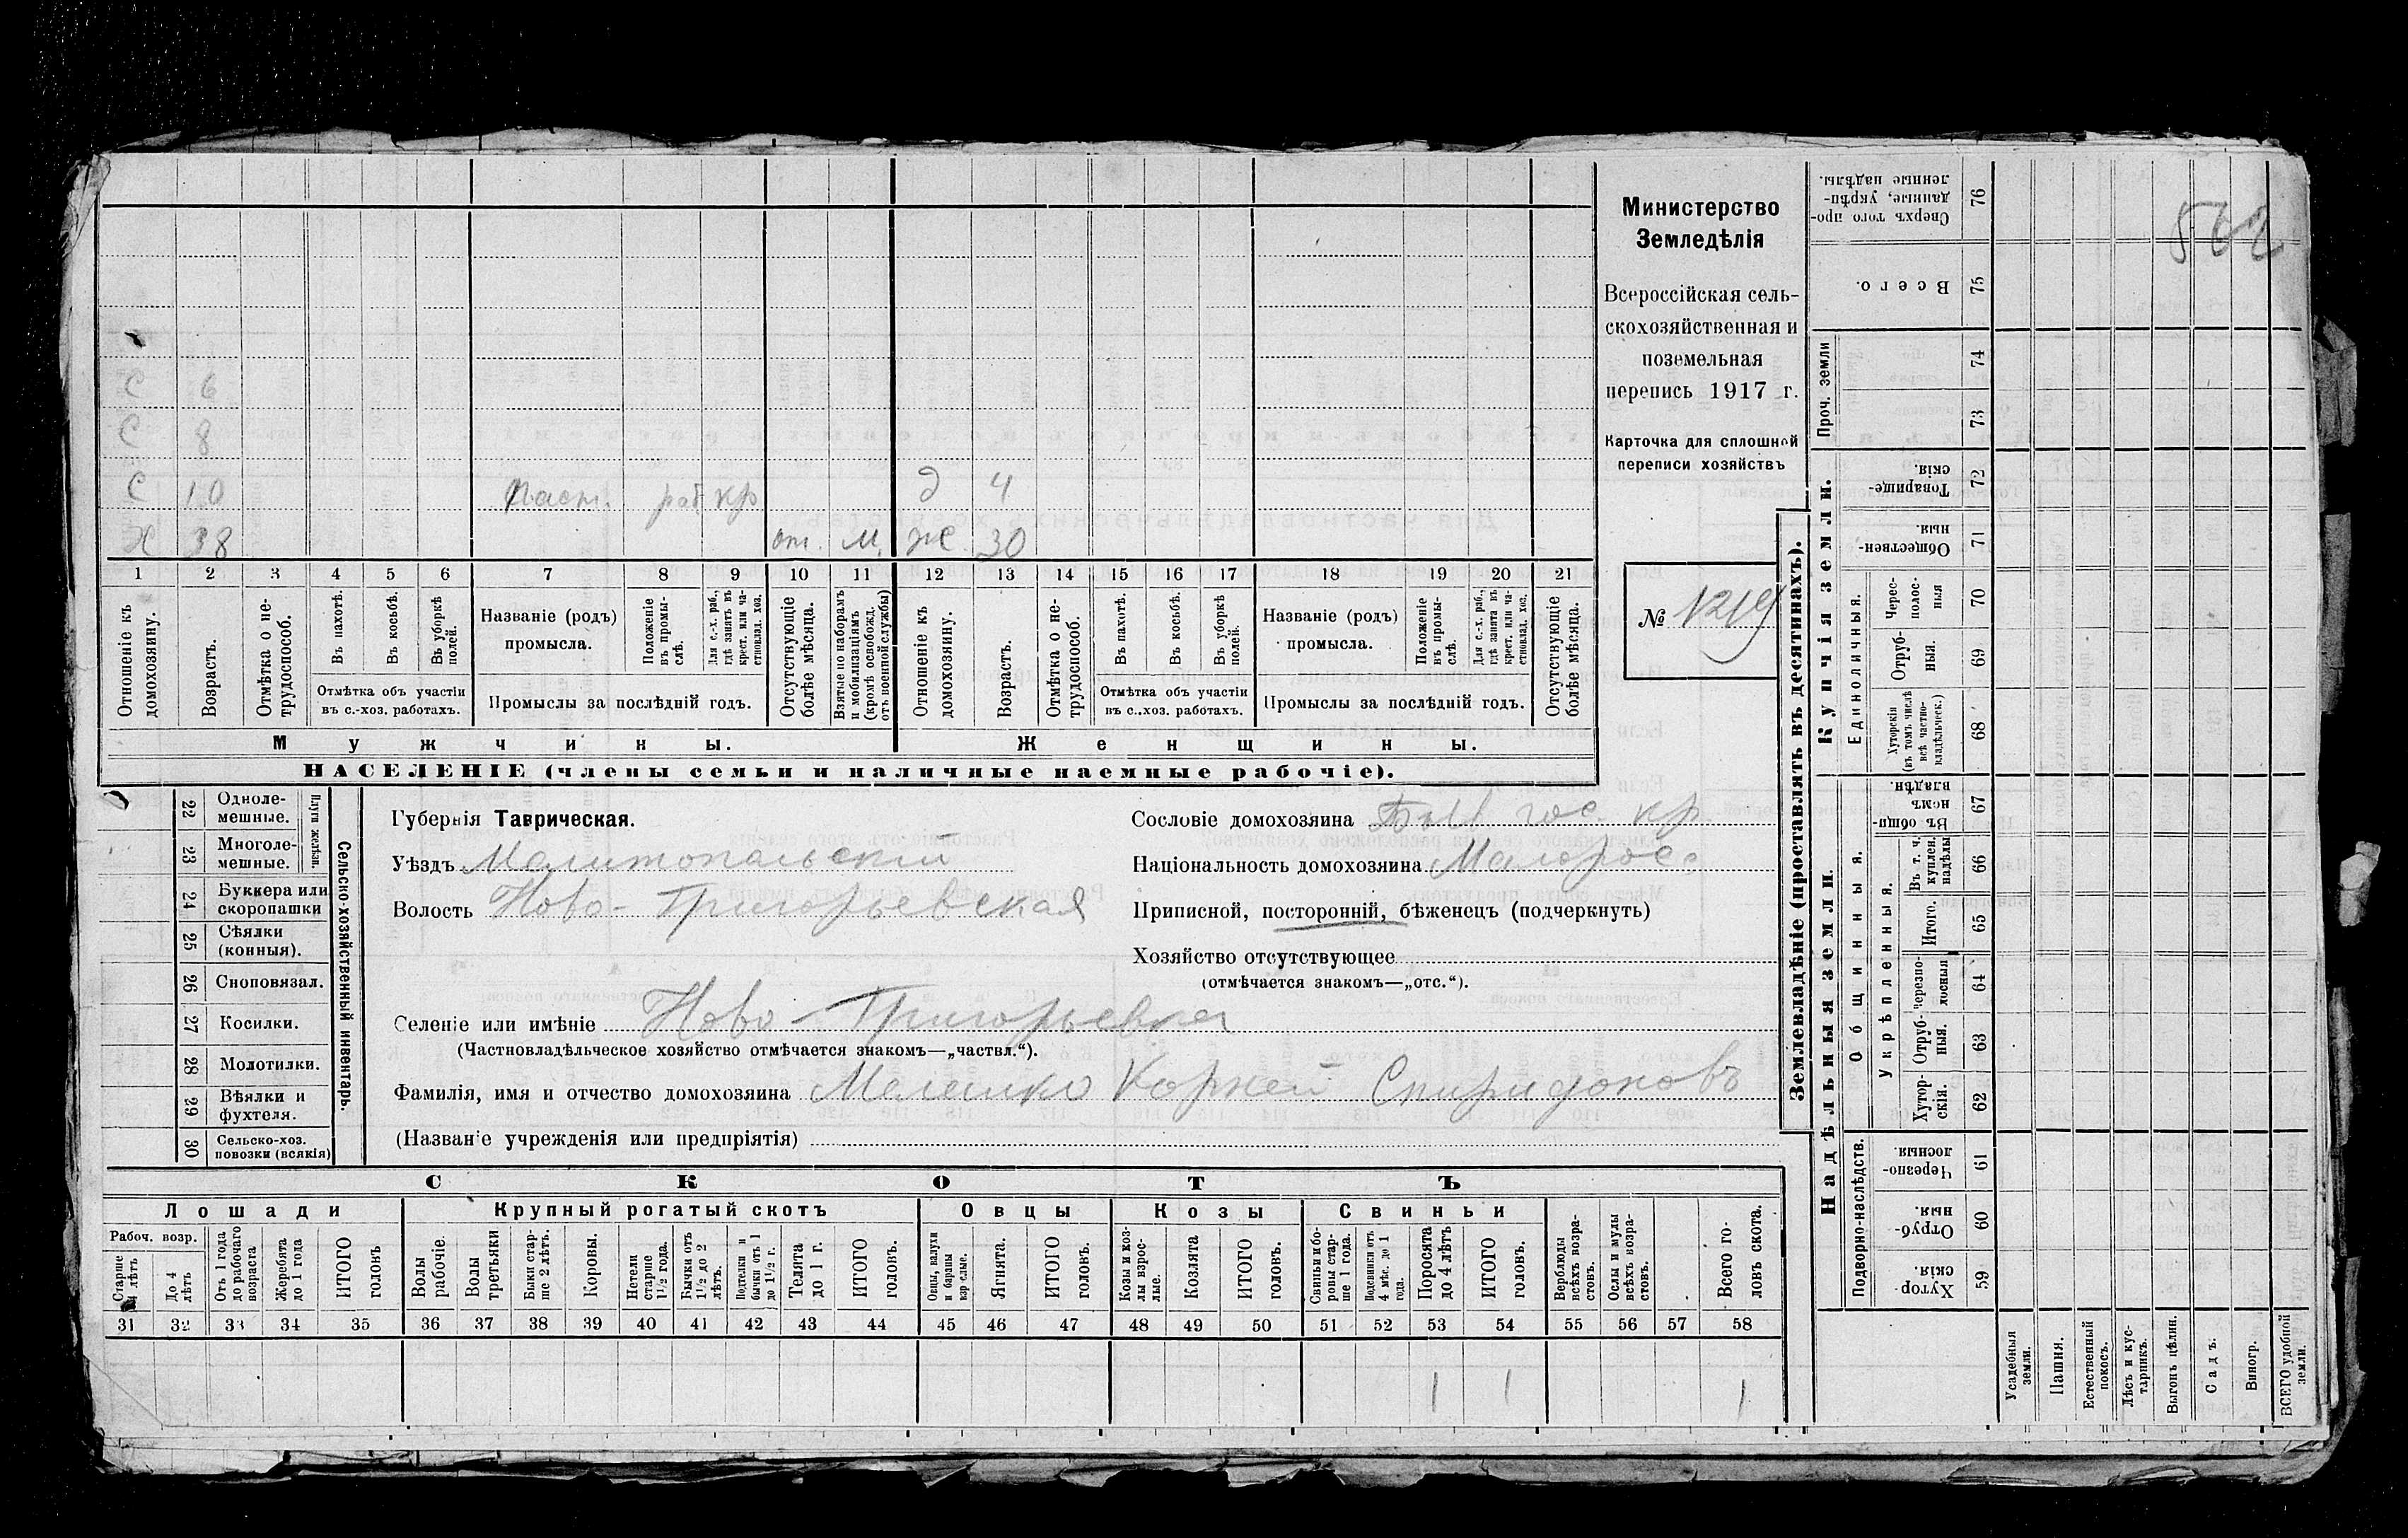 562
Министерство
Земледѣлія
Всероссійская сель-
скохозяйственная и
поземельная
перепись 1917 г.
Карточка для сплошной
переписи хозяйствъ
№ 1219
С 6
С 8
С 10 Паст. раб кр д 4
Х 38 от. М. ж 30
1 2 3 4 5 6 7 8 9 10 11 12 13 14 15 16 17 18 19 20 21
Отношеніе къ домохозяину.
Возрастъ.
Отмѣтка о не-трудоспособ.
Въ пахотѣ.
Въ косьбѣ.
Въ уборкѣ полей.
Отмѣтка объ участіи
въ с.-хоз. работахъ.
Названіе (родъ)
промысла.
Положеніе въ промы-слѣ.
Для с.-х. раб., гдѣ занятъ въ крест. или ча-стновлад. хоз.
Промыслы за послѣдній годъ.
Отсутствующіе болѣе мѣсяца.
Взятые по наборамъ и мобилизаціямъ (кромѣ освобожд. отъ военной службы)
Отношеніе къ домохозяину.
Возрастъ.
Отмѣтка о не-трудоспособ.
Въ пахотѣ.
Въ косьбѣ.
Въ уборкѣ полей.
Отмѣтка объ участіи
въ с..хоз. работахъ.
Названіе (родъ)
промысла.
Положеніе въ промы-слѣ.
Для с.-х. раб., гдѣ занята въ крест. или ча-стновлад. хоз.
Промыслы за послѣдній годъ.
Отсутствующіе болѣе мѣсяца.
Мужчины. Женщины.
НАСЕЛЕНІЕ (члены семьи и наличные наемные рабочіе).
Сельско-хозяйственный инвентарь.
Плуги желѣзн.
22 Одноле-мешные.
23 Многоле-мешные.
24 Буккера или скоропашки
25 Сѣялки (конныя).
26 Сноповязал.
27 Косилки.
28 Молотилки.
29 Вѣялки и фухтеля.
30 Сельско-хоз. повозки (всякія)
Губернія Таврическая.
Уѣздъ Мелитопольскій
Волость Ново-Григорьевская
Сословіе домохозяина Быв гос. кр.
Національность домохозяина Малорос.
Приписной, посторонній, бѣженецъ (подчеркнуть)
Хозяйство отсутствующее
(отмѣчается знакомъ—„отс.“).
Селеніе или имѣніе Ново-Григорьевка
(Частновладѣльческое хозяйство отмѣчается знакомъ—„частвл.“).
Фамилія, имя и отчество домохозяина Мелешко Корней Спиридоновъ
(Названіе учрежденія или предпріятія)
СКОТЪ
Лошади Крупный рогатый скотъ Овцы Козы Свиньи
Рабоч. возр.
Старше 4 лѣтъ
До 4 лѣтъ
Отъ 1 года до рабочаго возраста
Жеребята до 1 года
ИТОГО головъ
Волы рабочіе.
Волы третьяки
Быки стар-ше 2 лѣтъ.
Коровы.
Нетели старше 1½ года.
Бычки отъ 1½ до 2 лѣтъ.
Подтелки и бычки отъ 1 до 1½ г.
Телята до 1 г.
ИТОГО головъ.
Овцы, валухи и бараны взрослые.
Ягнята.
ИТОГО головъ.
Козы и коз-лы взрос-лые.
Козлята
ИТОГО головъ.
Свиньи и бо-ровы стар-ше 1 года.
Подсвинки отъ 4 мѣс. до 1 года.
Поросята до 4 лѣтъ
ИТОГО головъ.
Верблюды всѣхъ возра-стовъ.
Ослы и мулы всѣхъ возра-стовъ.
Всего го-ловъ скота.
31 32 33 34 35 36 37 38 39 40 41 42 43 44 45 46 47 48 49 50 51 52 53 54 55 56 57 58
1 1 1
Землевладѣніе (проставлять въ десятинахъ).
Купчія земли.
Проч. земли
Сверхъ того про-данные, укрѣп-ленные надѣлы. 76
Всего. 75
74
73
Товарище-скія. 72
Обществен-ныя. 71
Единоличныя.
Черес-полос-ныя 70
Отруб-ныя. 69
Хуторскія (въ томъ числѣ всѣ частно-владѣльческ.) 68
Надѣльныя земли.
Общинныя.
Въ общи-номъ владѣн. 67
Укрѣпленныя.
Въ т. ч. куплен. надѣлы 66
Итого. 65
Черезпо-лосныя 64
Отруб-ныя. 63
Хутор-скія. 62
Подворно-наслѣдств.
Черезпо-лосныя. 61
Отруб-ныя. 60
Хутор-скія. 59
Усадебныя земли.
Пашня.
Естественный покосъ.
Лѣсъ и кус-тарникъ.
Выгонъ цѣлин.
Садъ.
Виногр.
ВСЕГО удобной земли.